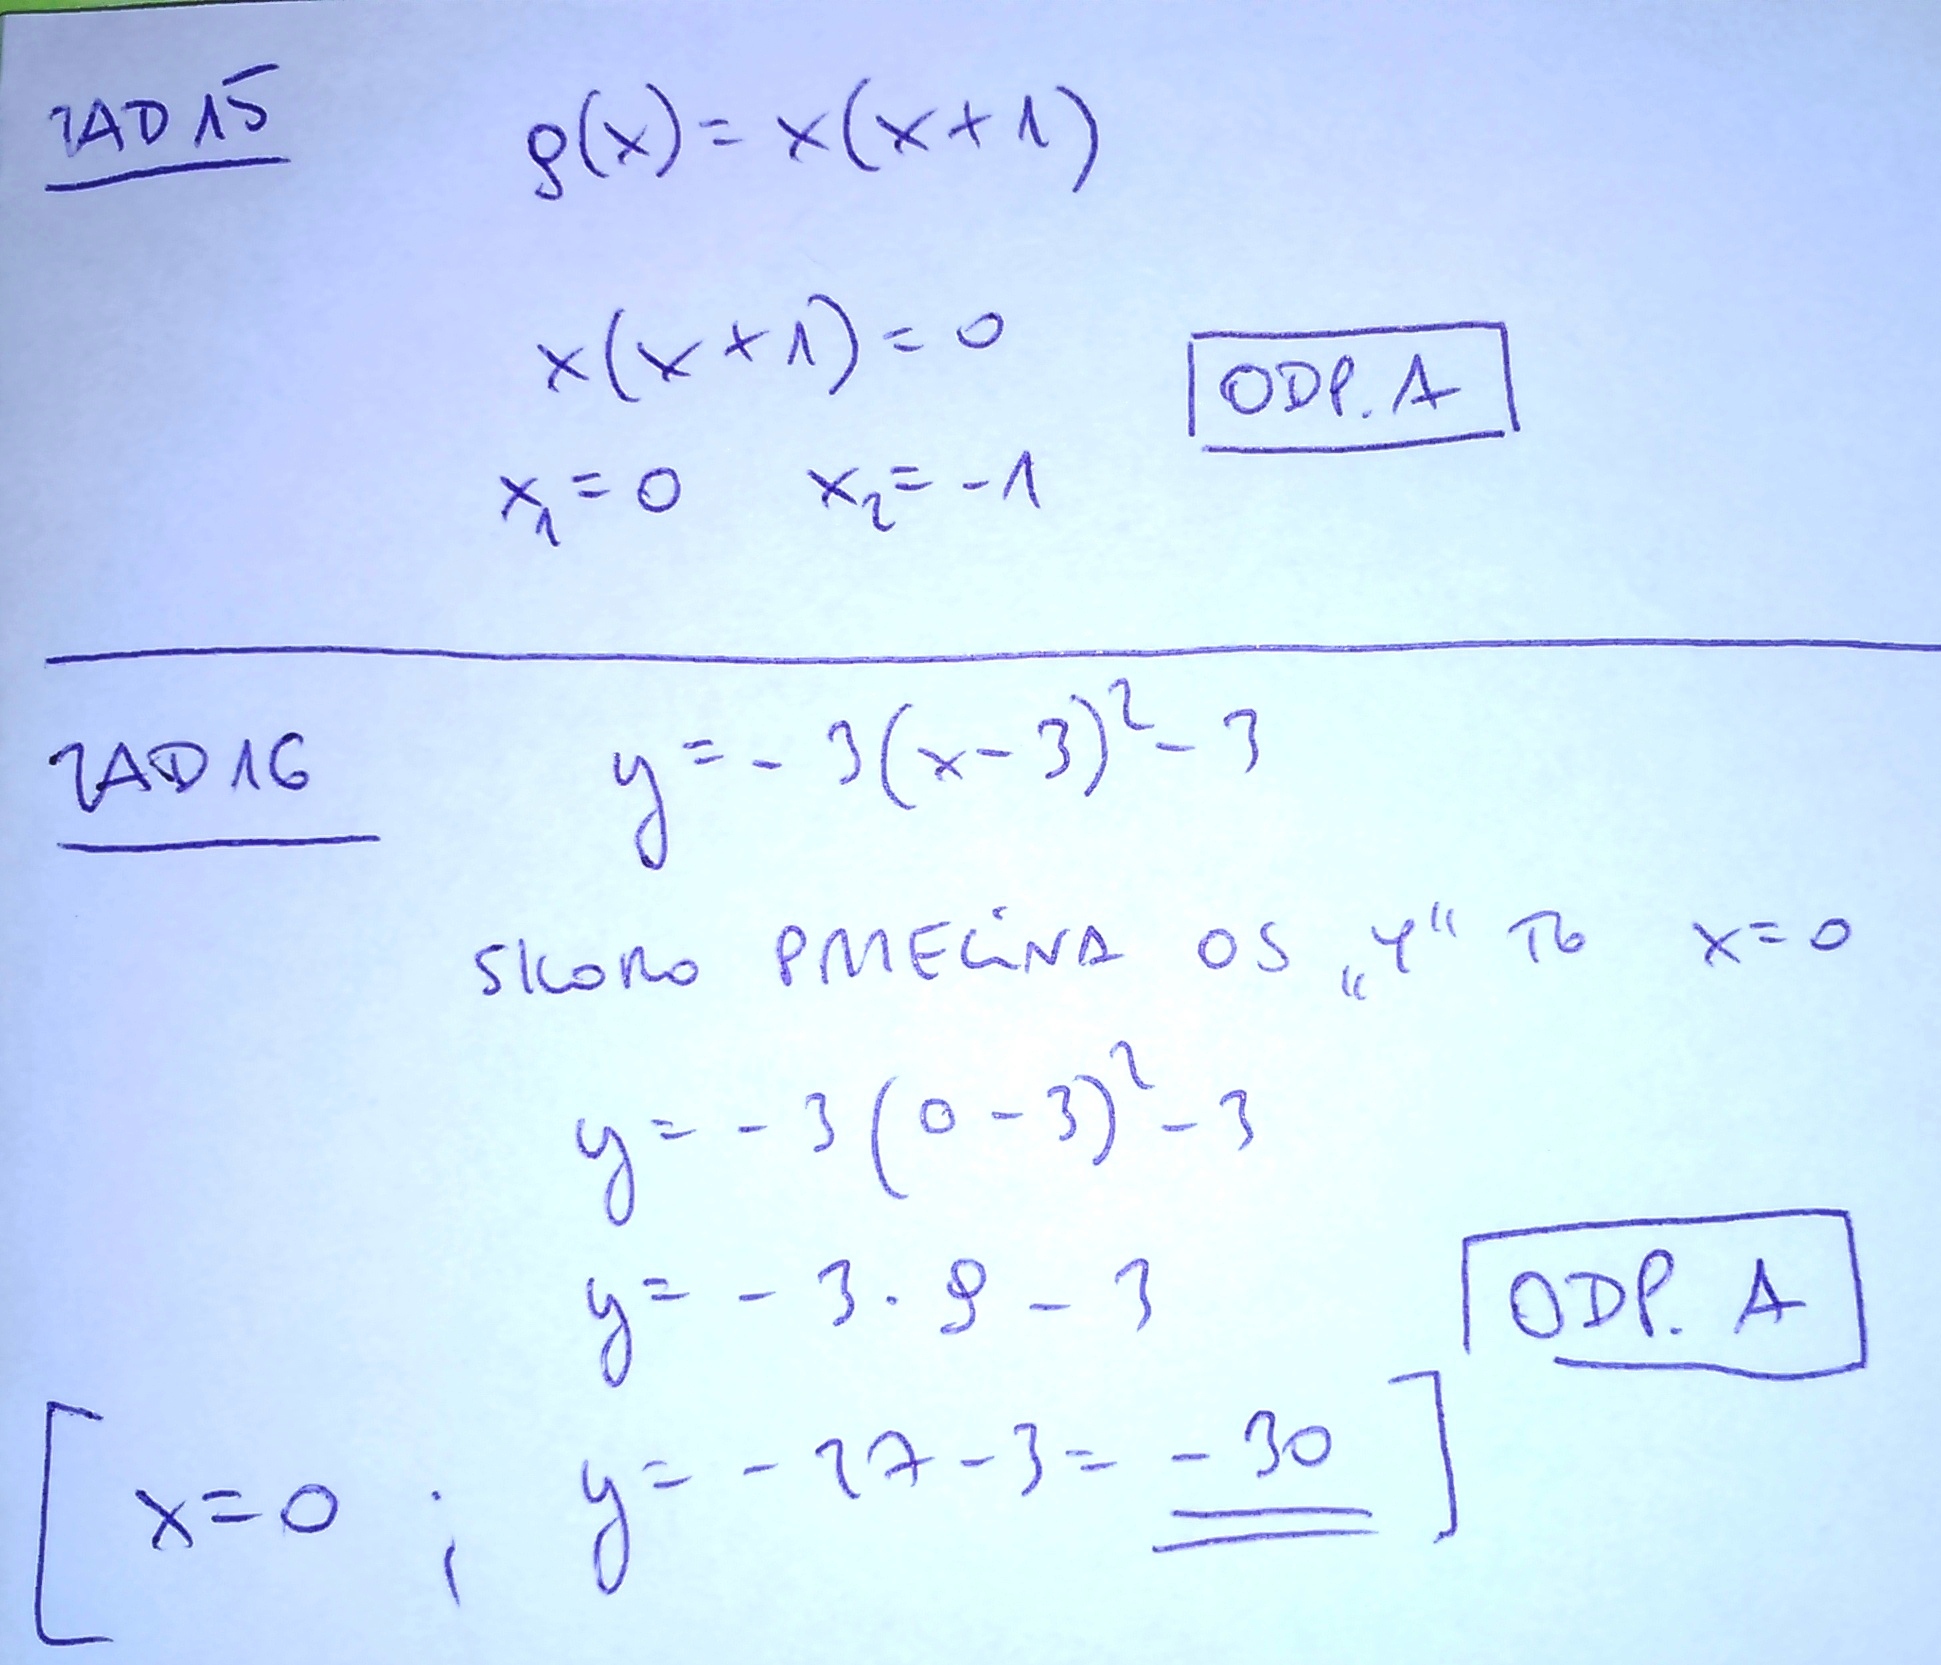 ZAD 15 g(x) = x(x+1)
x(x+1) = 0
ODP. A
x₁ = 0 x₂ = -1
ZAD 16 y = -3(x-3)² - 3
SKORO PRZECINA OŚ „Y" TO x = 0
y = -3(0-3)² - 3
y = -3 · 9 - 3
ODP. A
[x = 0 ; y = -27 - 3 = -30]